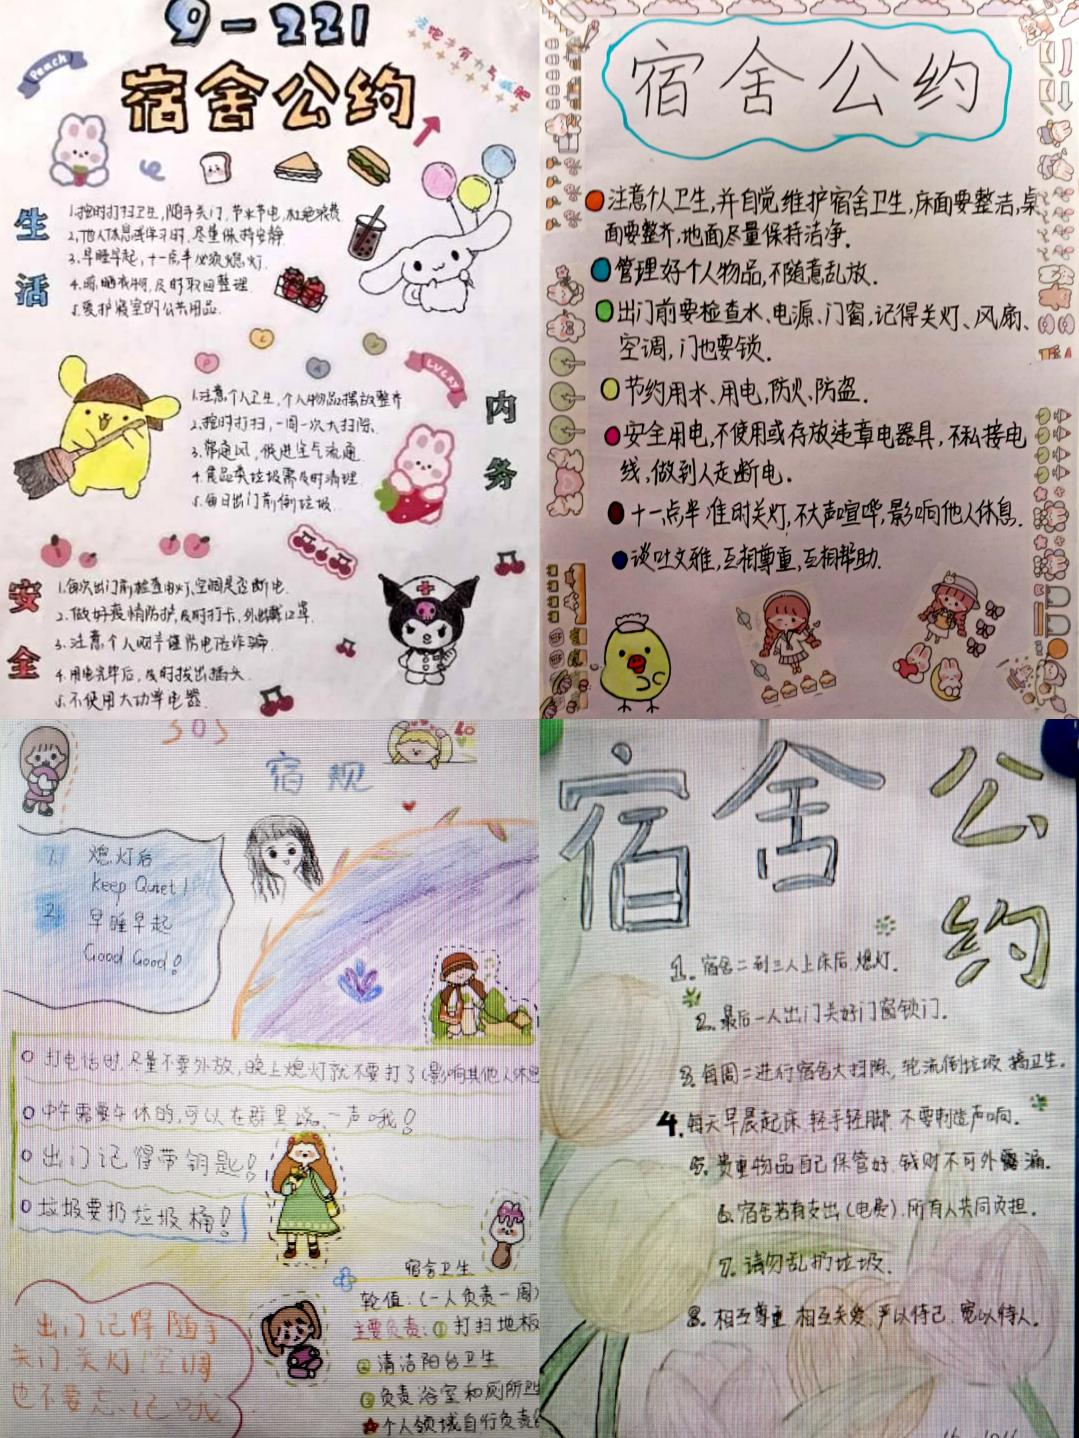 9-221
宿舍公约
Peach
生活
1.按时打扫卫生,随手关门,节水节电,杜绝浪费
2.他人休息或学习时,尽量保持安静
3.早睡早起,十一点半必须熄灯.
4.晾晒衣物,及时取回整理
5.爱护寝室的公共用品.
LUCKY
内务
1.注意个人卫生,个人物品摆放整齐
2.按时打扫,一周一次大扫除.
3.常通风,促进空气流通
4.食品类垃圾需及时清理.
5.每日出门前倒垃圾.
安全
1.每次出门前检查电灯,空调是否断电.
2.做好疫情防护,及时打卡,外出戴口罩.
3.注意个人财产谨防电信诈骗.
4.用电完毕后,及时拔出插头.
5.不使用大功率电器.
宿舍公约
注意个人卫生,并自觉维护宿舍卫生,床面要整洁,桌
面要整齐,地面尽量保持洁净.
管理好个人物品,不随意乱放.
出门前要检查水、电源、门窗,记得关灯、风扇、
空调,门也要锁.
节约用水、用电,防火、防盗.
安全用电,不使用或存放违章电器具,不私接电
线,做到人走断电.
十一点半准时关灯,不大声喧哗,影响他人休息.
谈吐文雅,互相尊重,互相帮助.
303
宿规
1. 熄灯后
Keep Quiet!
2. 早睡早起
Good Good!
打电话时,尽量不要外放,晚上熄灯就不要打了(影响其他人休息
中午需要午休的,可以在群里说一声哦!
出门记得带钥匙!
垃圾要扔垃圾桶!
出门记得随手
关门,关灯!空调
也不要忘记哦
宿舍卫生
轮值:(一人负责一周)
主要负责:①打扫地板
②清洁阳台卫生
③负责浴室和厕所卫
个人领域自行负责
宿舍公约
1. 宿舍二到三人上床后,熄灯.
2.最后一人出门关好门窗锁门.
3.每周二进行宿舍大扫除,轮流倒垃圾 搞卫生.
4.每天早晨起床,轻手轻脚,不要制造声响.
5.贵重物品自己保管好,钱财不可外露滴.
6.宿舍若有支出(电费),所有人共同负担.
7.请勿乱扔垃圾.
8.相互尊重,相互关爱,严以待己,宽以待人.